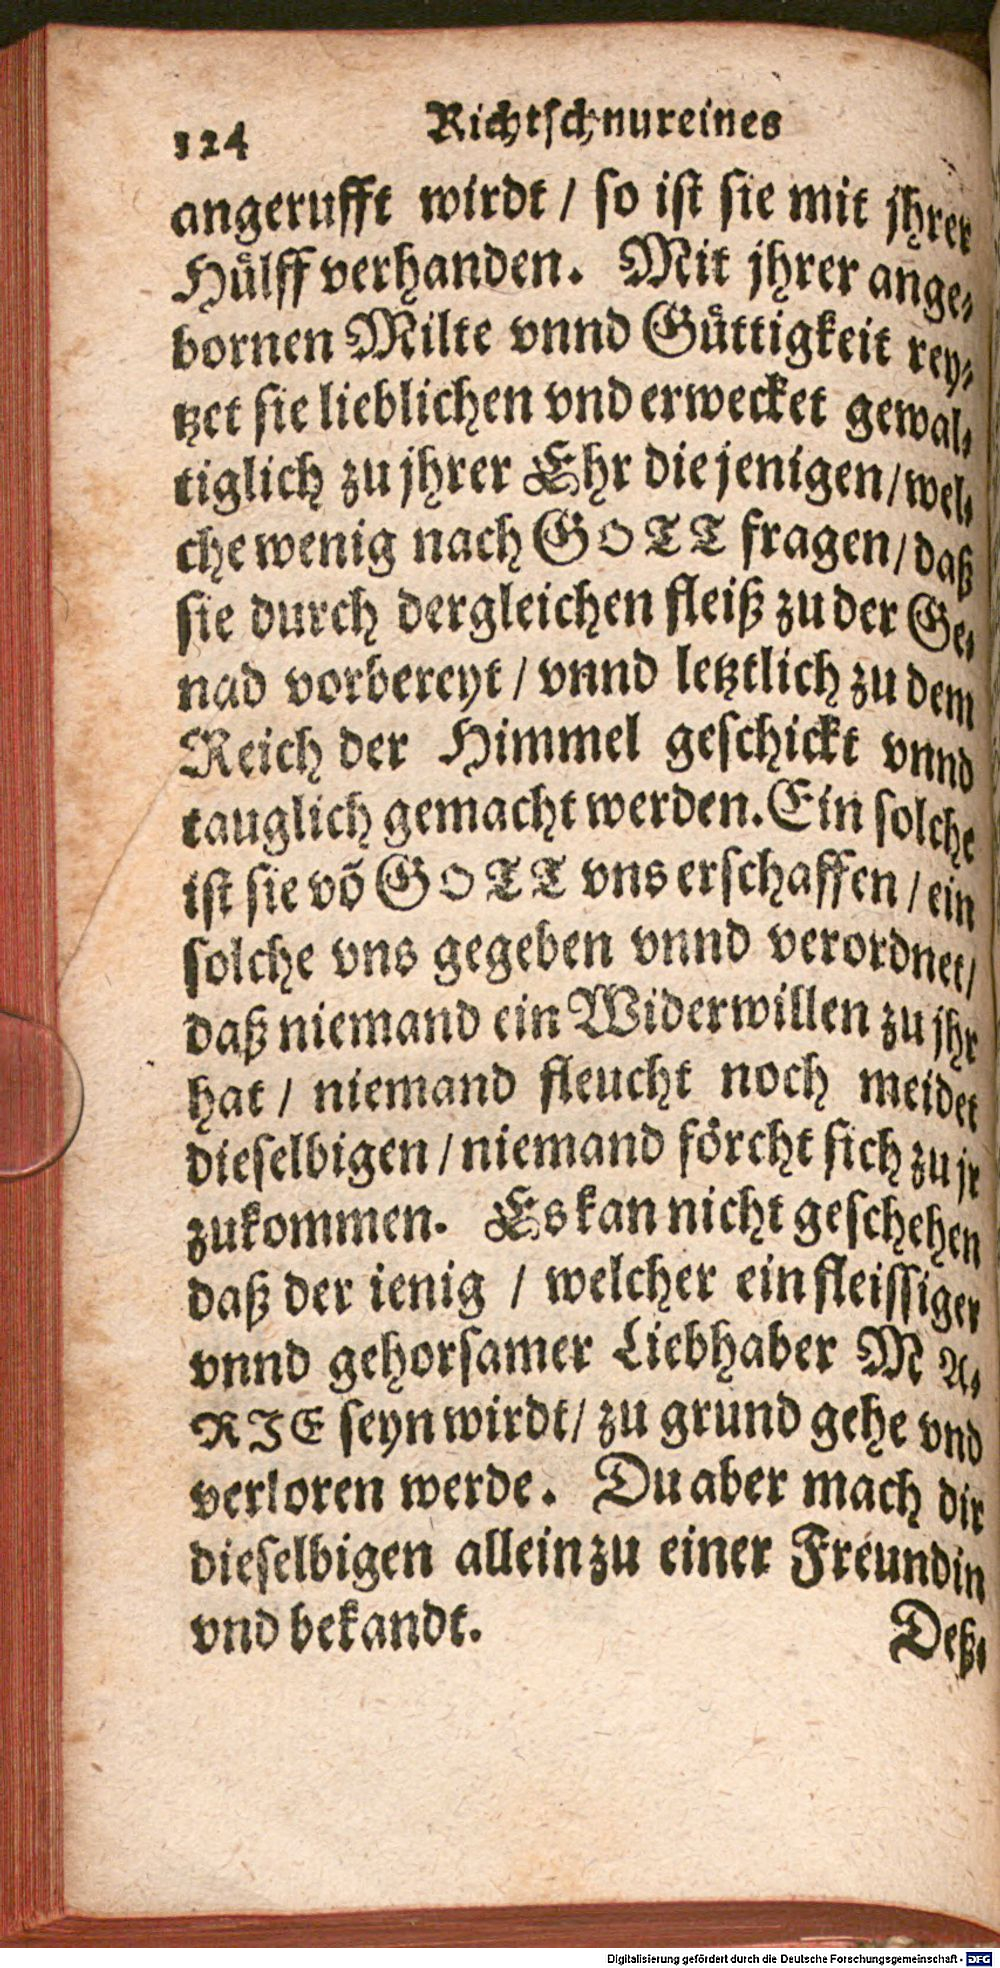 124 Richtschnur eines
angerufft wirdt / so ist sie mit jhrer
Hülff verhanden. Mit jhrer ange-
bornen Milte vnnd Güttigkeit rey-
tzet sie lieblichen vnd erwecket gewal-
tiglich zu jhrer Ehr die jenigen / wel-
che wenig nach GOTT fragen / daß
sie durch dergleichen fleiß zu der Ge-
nad vorbereyt / vnnd letztlich zu dem
Reich der Himmel geschickt vnnd
tauglich gemacht werden. Ein solche
ist sie võ GOTT vns erschaffen / ein
solche vns gegeben vnnd verordnet /
daß niemand ein Widerwillen zu jhr
hat / niemand fleucht noch meidet
dieselbigen / niemand förcht sich zu jr
zukommen. Es kan nicht geschehen
daß der ienig / welcher ein fleissiger
vnnd gehorsamer Liebhaber MA-
RIE seyn wirdt / zu grund gehe vnd
verloren werde. Du aber mach dir
dieselbigen allein zu einer Freundin
vnd bekandt.
Deß-
Digitalisierung gefördert durch die Deutsche Forschungsgemeinschaft - DFG